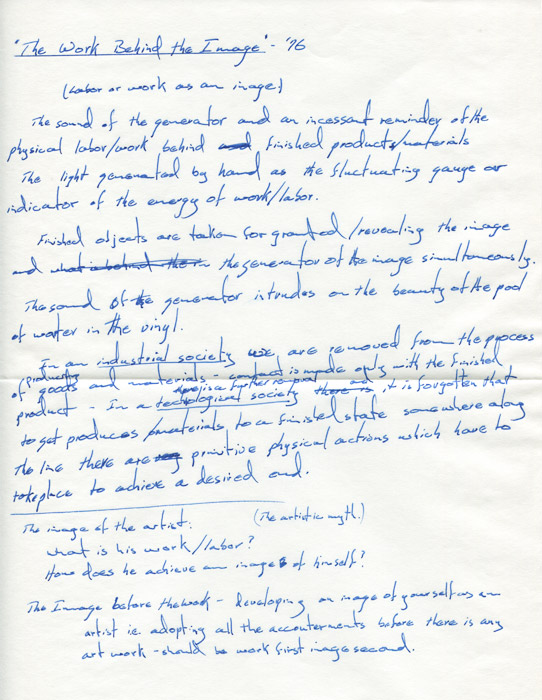 "The Work Behind the Image" - '76
(Labor or work as an image)
The sound of the generator and an incessant reminder of the
physical labor/work behind and finished products/materials
The light generated by hand as the fluctuating gauge or
indicator of the energy of work/labor.
Finished objects are taken for granted/revealing the image
and what is behind them the generator of the image simultaneously.
The sound of the generator intrudes on the beauty of the pool
of water in the vinyl.
In an industrial society we are removed from the process
of producing goods and materials - contact is made only with the finished
product - In a technological society there is a further removal and it is forgotten that
to get produces/materials to a finished state somewhere along
the line there are primitive physical actions which have to
take place to achieve a desired end.
The image of the artist. (The artistic myth.)
what is his work/labor?
How does he achieve an image of himself?
The Image before the work - developing an image of yourself as an
artist ie. adopting all the accouterments before there is any
art work - should be work first image second.